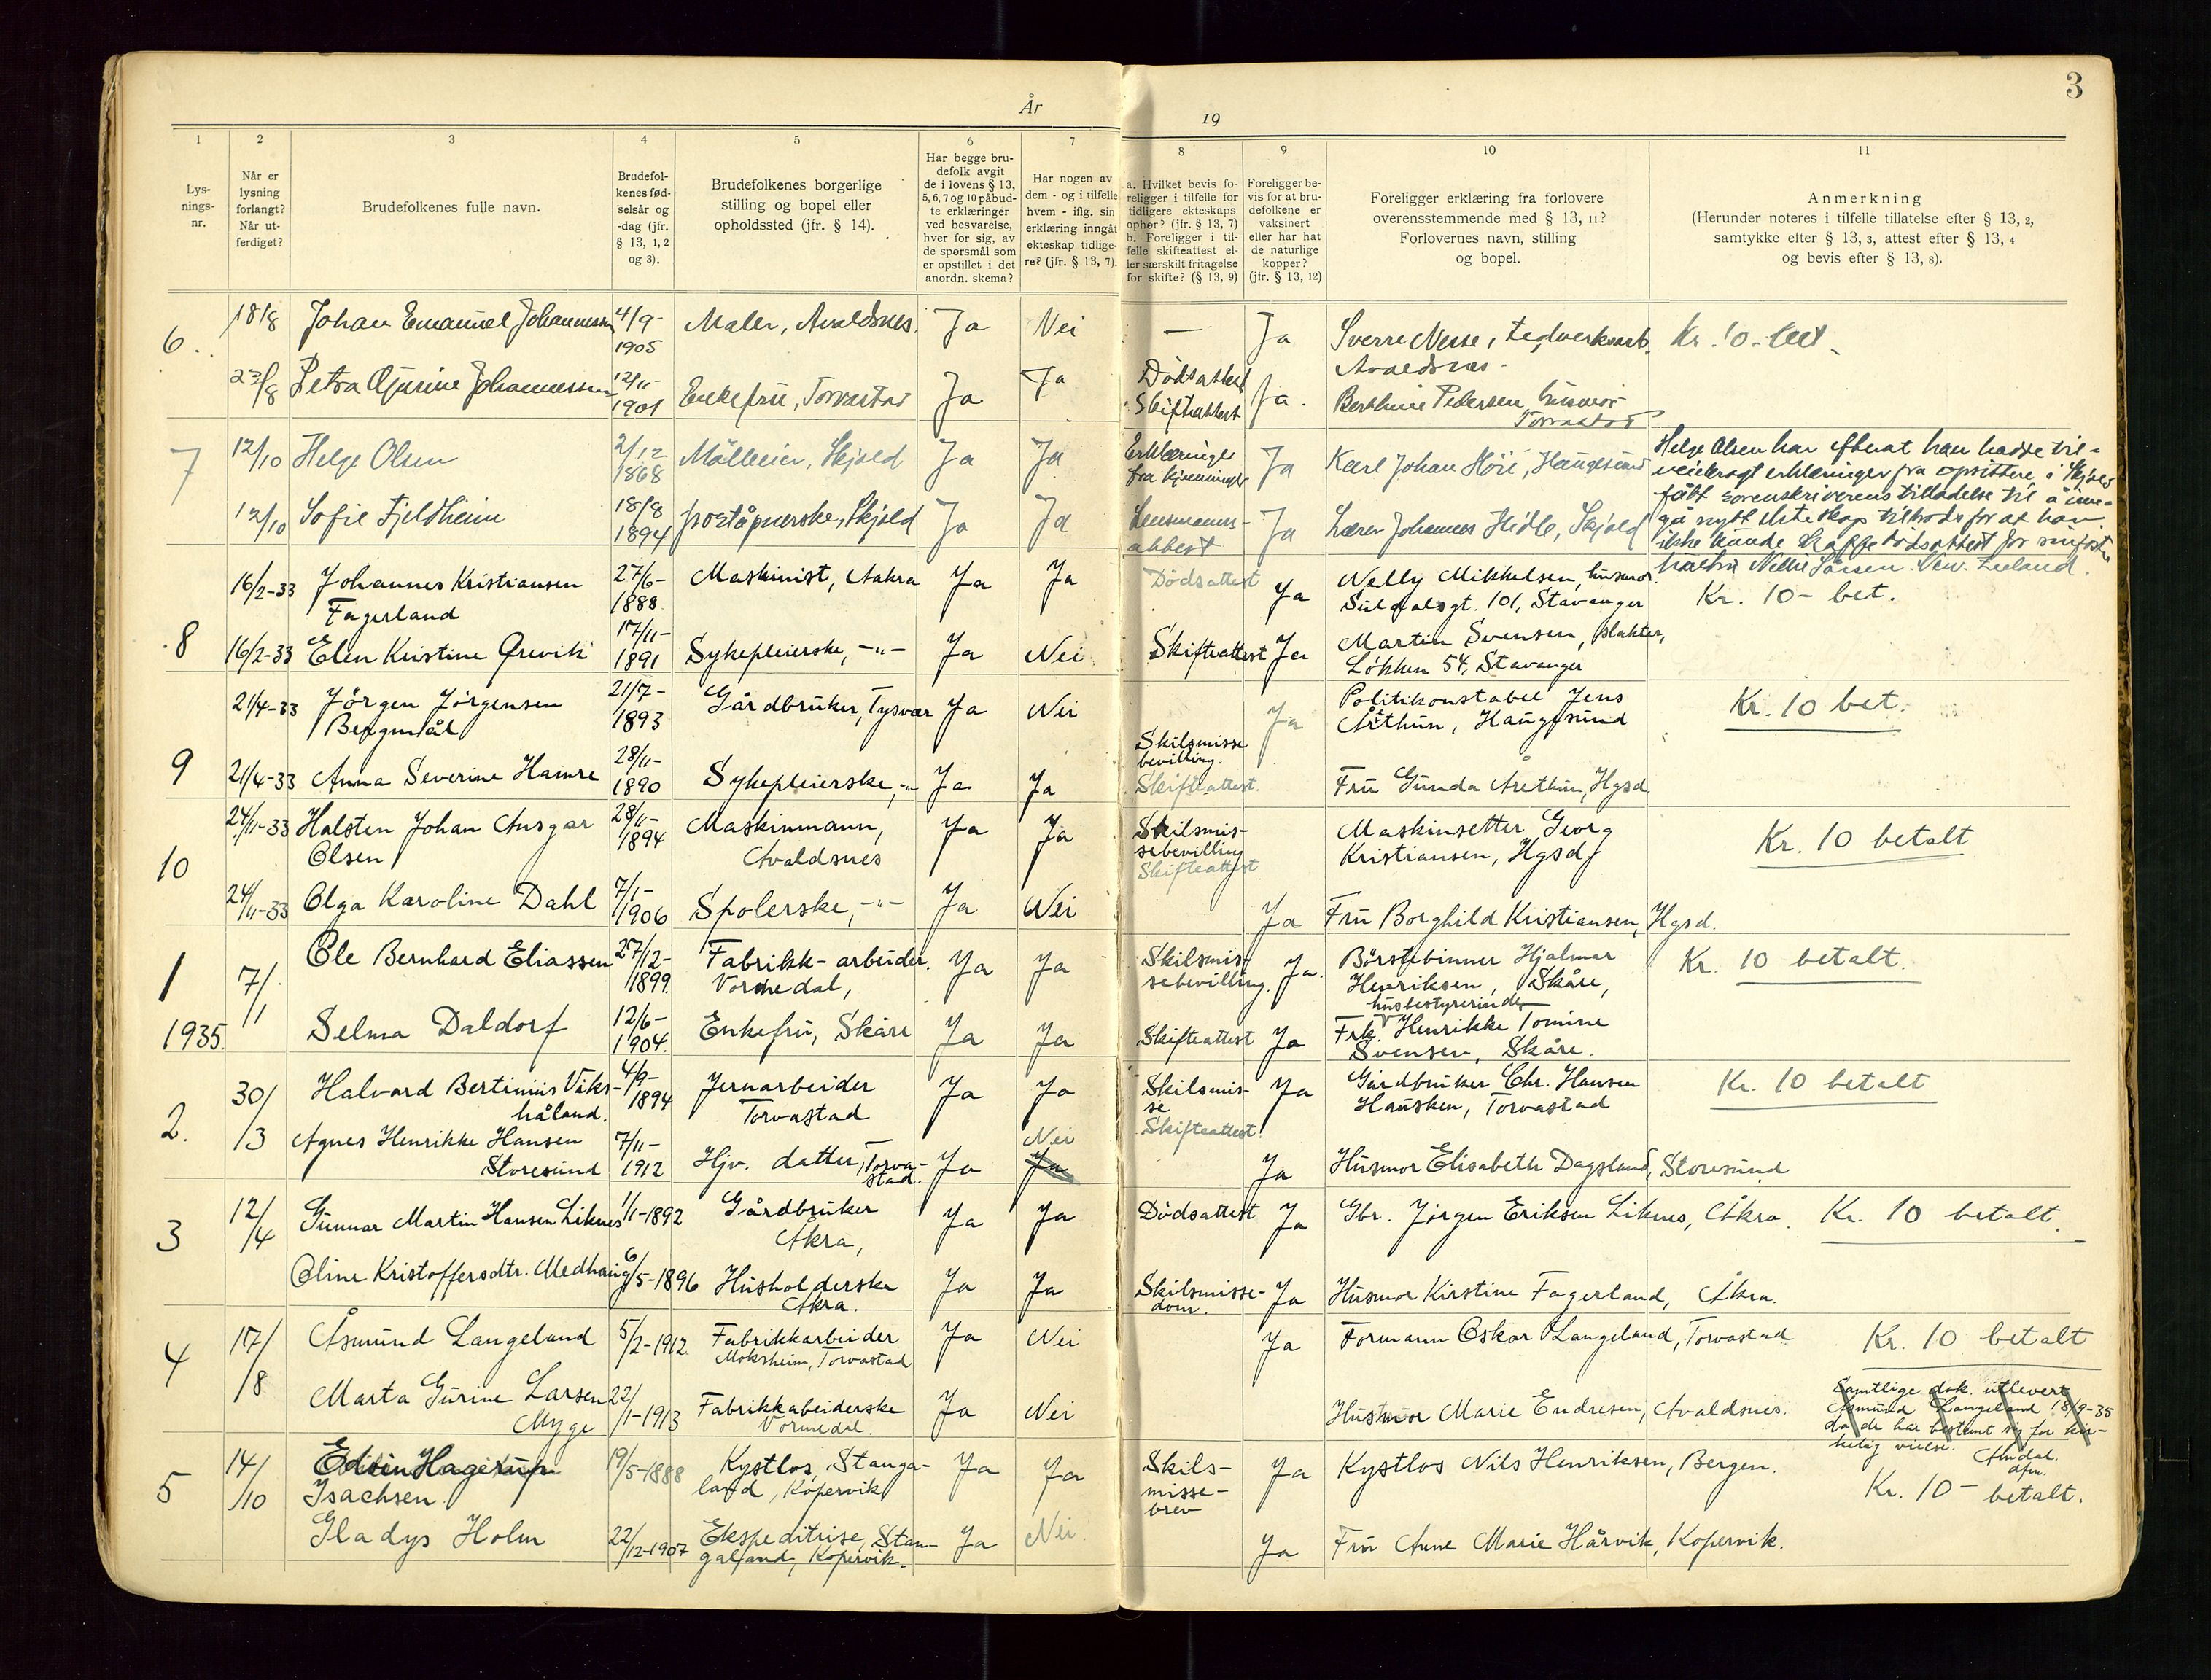 3
År
19
1
2
3
4
5
6
7
8
9
10
11
Lys-
nings-
nr.
Når er
lysning
forlangt?
Når ut-
ferdiget?
Brudefolkenes fulle navn.
Brudefol-
kenes fød-
selsår og
-dag (jfr.
§ 13, 1, 2
og 3).
Brudefolkenes borgerlige
stilling og bopel eller
opholdssted (jfr. § 14).
Har begge bru-
defolk avgit
de i lovens § 13,
5, 6, 7 og 10 påbud-
te erklæringer
ved besvarelse,
hver for sig, av
de spørsmål som
er opstillet i det
anordn. skema?
Har nogen av
dem - og i tilfelle
hvem - iflg. sin
erklæring inngåt
ekteskap tidlige-
re? (jfr. § 13, 7).
a. Hvilket bevis fo-
religger i tilfelle for
tidligere ekteskaps
ophør? (jfr. § 13, 7)
b. Foreligger i til-
felle skifteattest el-
ler særskilt fritagelse
for skifte? (§ 13, 9)
Foreligger be-
vis for at bru-
defolkene er
vaksinert
eller har hat
de naturlige
kopper?
(jfr. § 13, 12)
Foreligger erklæring fra forlovere
overensstemmende med § 13, 11?
Forlovernes navn, stilling
og bopel.
Anmerkning
(Herunder noteres i tilfelle tillatelse efter § 13, 2,
samtykke efter § 13, 3, attest efter § 13, 4
og bevis efter § 13, 8).
6.
18/8 Johan Emanuel Johannessen 4/9- 1905 Maler, Avaldsnes. Ja Nei — Ja Sverre Nesse, teglverksarb. Avaldsnes. Kr. 10.- bet.
23/8 Petra Gjurine Johannessen 12/11- 1901 Enkefru, Torvastad Ja Ja Dødsattest Skifteattest Ja. Berthine Pedersen husmor Torvastad
7
12/10 Helge Olsen 2/12 1868 Mølleier, Skjold Ja Ja Erklæringer fra Ja Karl Johan Høie, Haugesund
Helge Olsen har efterat han hadde til-
veiebragt erklæringer fra opsittere i Skjold
fått sorenskriverens tilladelse til å inn-
gå nytt ekteskap tiltrods for at han
ikke kunde skaffe dødsattest for sin første
hustru
12/10 Sofie Fjeldheim 18/8 1894 poståpnerske, Skjold Ja Ja Lensmanns- attest Ja Lærer Johannes Hidle, Skjold
8
16/2-33 Johannes Kristiansen Fagerland 27/6- 1888 Maskinist, Aakra Ja Ja Dødsattest Ja Nelly Mikkelsen, husmor. Suldalsgt. 101, Stavanger Kr. 10 - bet.
16/2-33 Elen Kristine Grevik 17/11- 1891 Sykepleierske, -"- Ja Nei Skifteattest Ja Martin Svensen, slakter, Løkken 54, Stavanger
9
21/4-33 Jørgen Jørgensen Bergmål 21/7- 1893 Gårdbruker, Tysvær Ja Nei Ja Politikonstabel Jens Årethun, Haugesund Kr. 10 bet.
21/4-33 Anna Severine Hamre 28/11- 1890 Sykepleierske, -"- Ja Ja Skilsmisse bevilling. Skifteattest. Fru Gunda Årethun, Hgsd
10
24/11-33 Halsten Johan Ansgar Olsen 28/11- 1894 Maskinmann, Avaldsnes Ja Ja Skilsmis- sebevilling Skifteattest. Maskinsetter Georg Kristiansen, Hgsd. Kr. 10 betalt
24/11-33 Olga Karoline Dahl 7/1- 1906 Spolerske, -"- Ja Nei Ja Fru Borghild Kristiansen, Hgsd.
1
1935.
7/1 Ole Bernhard Eliassen 27/12- 1899. Fabrikk-arbeider. Vormedal, Ja Ja Skilsmis- sebevilling. Ja. Børstebinner Hjalmar Henriksen, Skåre, Kr. 10 betalt.
Selma Daldorf 12/6- 1904. Enkefru, Skåre Ja Ja Skifteattest Ja Frk. husbestyrerinde Henrikke Tomine Svensen, Skåre.
2.
30/3 Halvard Bertinius Viks- håland. 4/9- 1894 Jernarbeider Torvastad Ja Ja Skilsmis- se Skifteattest. Ja Gårdbruker Chr. Hansen Hausken, Torvastad Kr. 10 betalt
Agnes Henrikke Hansen Storesund 7/11- 1912 Hjv. datter, Torva- stad. Ja Nei Ja Ja Husmor Elisabeth Dagsland, Storesund
3
12/4 Gunnar Martin Hansen Liknes 1/1-1892 Gårdbruker Åkra, Ja Ja Dødsattest Ja Gbr. Jørgen Eriksen Liknes, Åkra. Kr. 10 betalt.
Oline Kristoffersdtr. Medhaug 6/5-1896 Husholderske Åkra. Ja Ja Skilsmisse- dom. Ja Husmor Kirstine Fagerland, Åkra.
4
17/8 Åsmund Langeland 5/2-1912. Fabrikkarbeider Moksheim, Torvastad Ja Nei Ja Formann Oskar Langeland, Torvastad Kr. 10 betalt
Marta Gurine Larsen Myge 22/1-1913 Fabrikkabeiderske Vormedal. Ja Nei Husmor Marie Endresen, Avaldsnes.
Samtlige dok. utlevert
Åsmund Langeland 18/9-35
da de har bestemt sig for kir-
kelig vielse.
5
14/10 Hagerup Isachsen. 19/5-1888 Kystlos, Stanga- land, Kopervik Ja Ja Skils- misse- brev Ja Kystlos Nils Henriksen, Bergen. Kr. 10 - betalt.
Gladys Holm 22/12-1907 Ekspeditrise, Stan- galand, Kopervik. Ja Nei Ja Fru Anne Marie Hårvik, Kopervik.